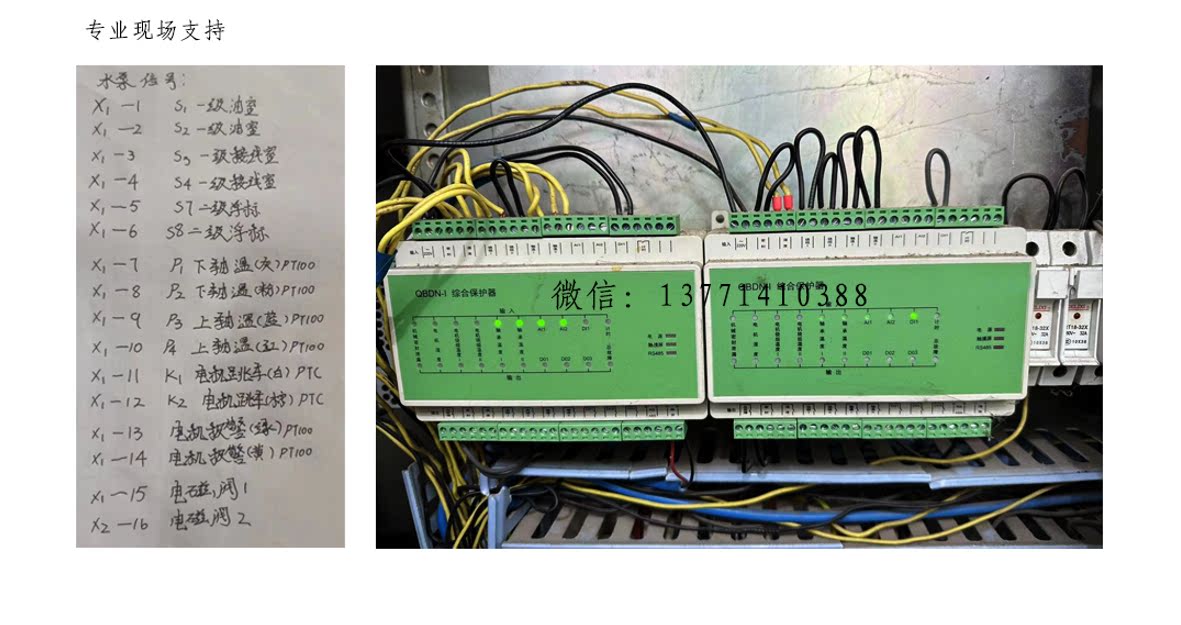 专业现场支持
水泵信号:
X1-1 S1 一级油室
X1-2 S2 一级油室
X1-3 S3 一级接线室
X1-4 S4 一级接线室
X1-5 S7 二级浮标
X1-6 S8 二级浮标
X1-7 P1 下轴温(灰)PT100
X1-8 P2 下轴温(粉)PT100
X1-9 P3 上轴温(蓝)PT100
X1-10 P4 上轴温(红)PT100
X1-11 K1 电机跳车(白)PTC
X1-12 K2 电机跳车(棕)PTC
X1-13 电机报警(绿)PT100
X1-14 电机报警(黄)PT100
X1-15 电磁阀1
X2-16 电磁阀2
QBDN-I 综合保护器
输入
AI1 AI2 DI1
DO1 DO2 DO3
输出
电源
触摸屏
RS485
QBDN-I 综合保护器
AI1 AI2 DI1
DO1 DO2 DO3
输出
电源
触摸屏
RS485
微信: 13771410388
RT18-32X
32A
10X38